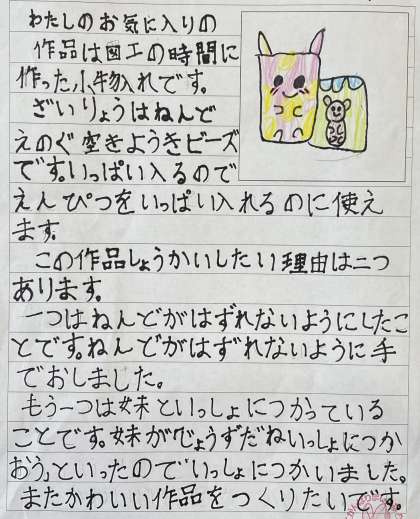 わたしのお気に入りの
作品は図工の時間に
作った小物入れです。
ざいりょうはねんど
えのぐ空きようきビーズ
です。いっぱい入るので
えんぴつをいっぱい入れるのに使え
ます。
この作品しょうかいしたい理由は二つ
あります。
一つはねんどがはずれないようにしたこ
とです。ねんどがはずれないように手
でおしました。
もう一つは妹といっしょにつかっている
ことです。妹が「じょうずだねいっしょにつか
おう」といったのでいっしょにつかいました。
またかわいい作品をつくりたいです。